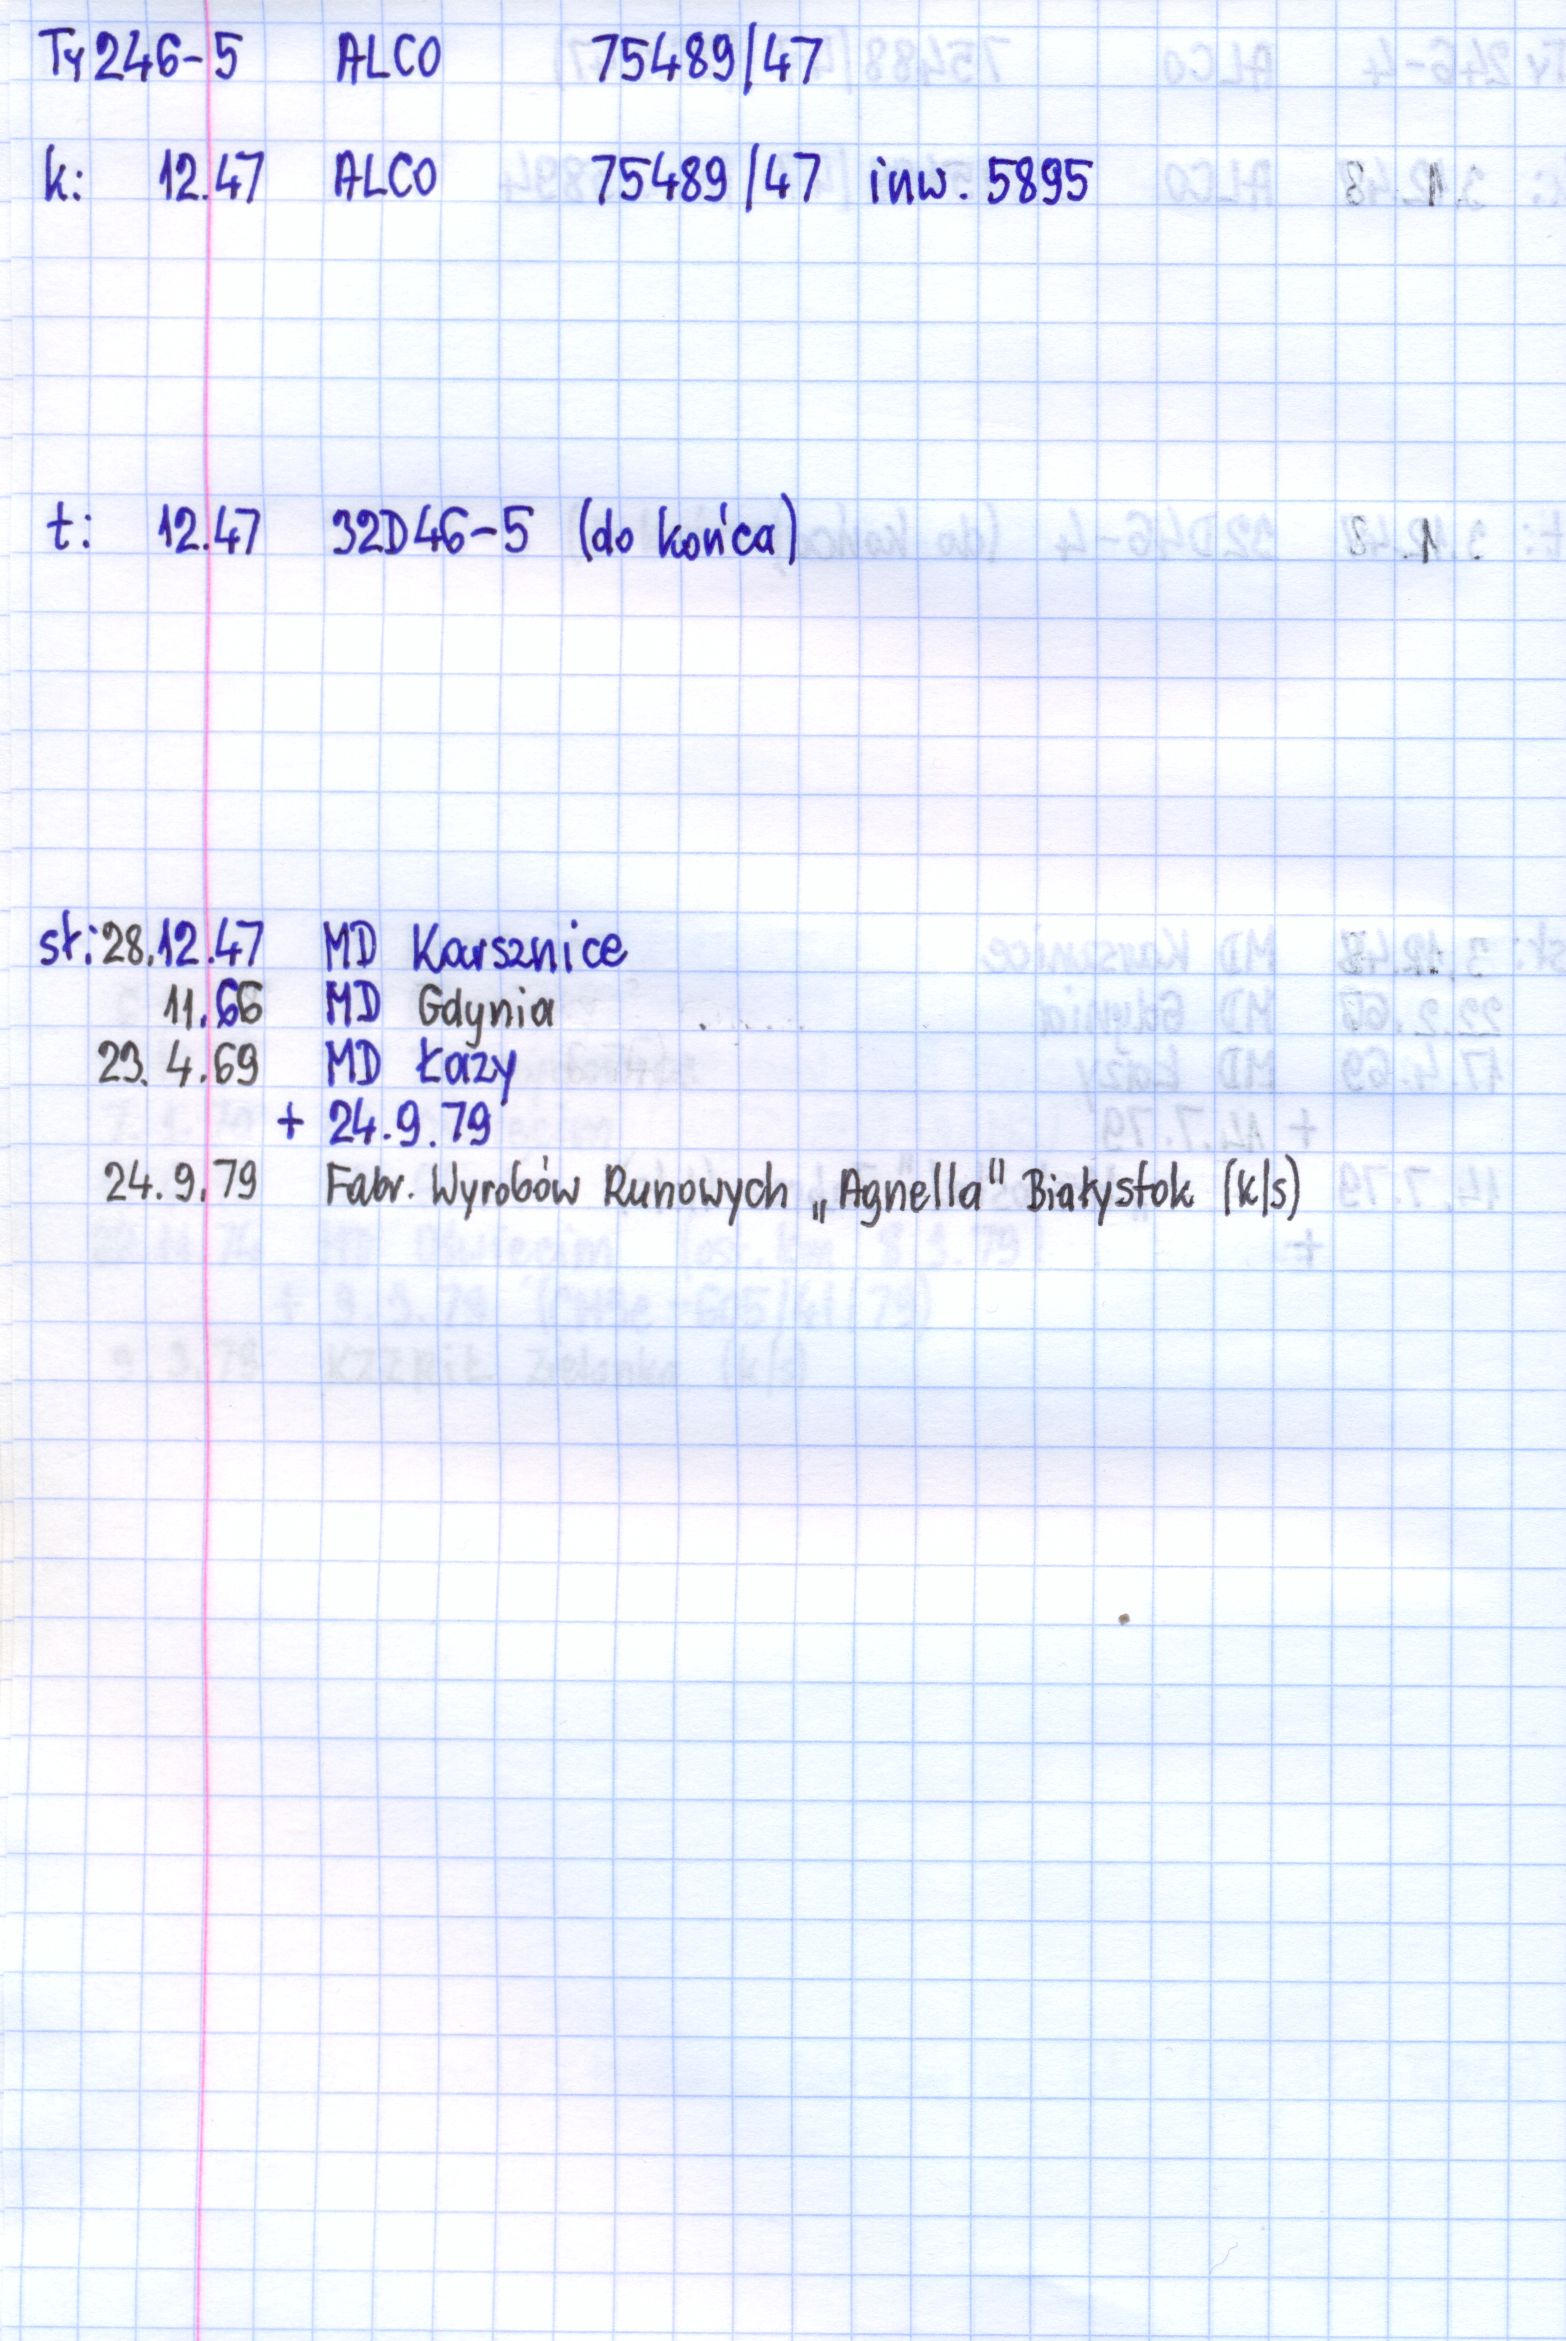 Ty246-5 ALCO 75489/47
k: 12.47 ALCO 75489/47 inw. 5895
t: 12.47 32D46-5 (do końca)
st: 28.12.47 MD Karsznice
11.66 MD Gdynia
23.4.69 MD Łazy
+ 24.9.79
24.9.79 Fabr. Wyrobów Runowych „Agnella" Białystok (k/s)